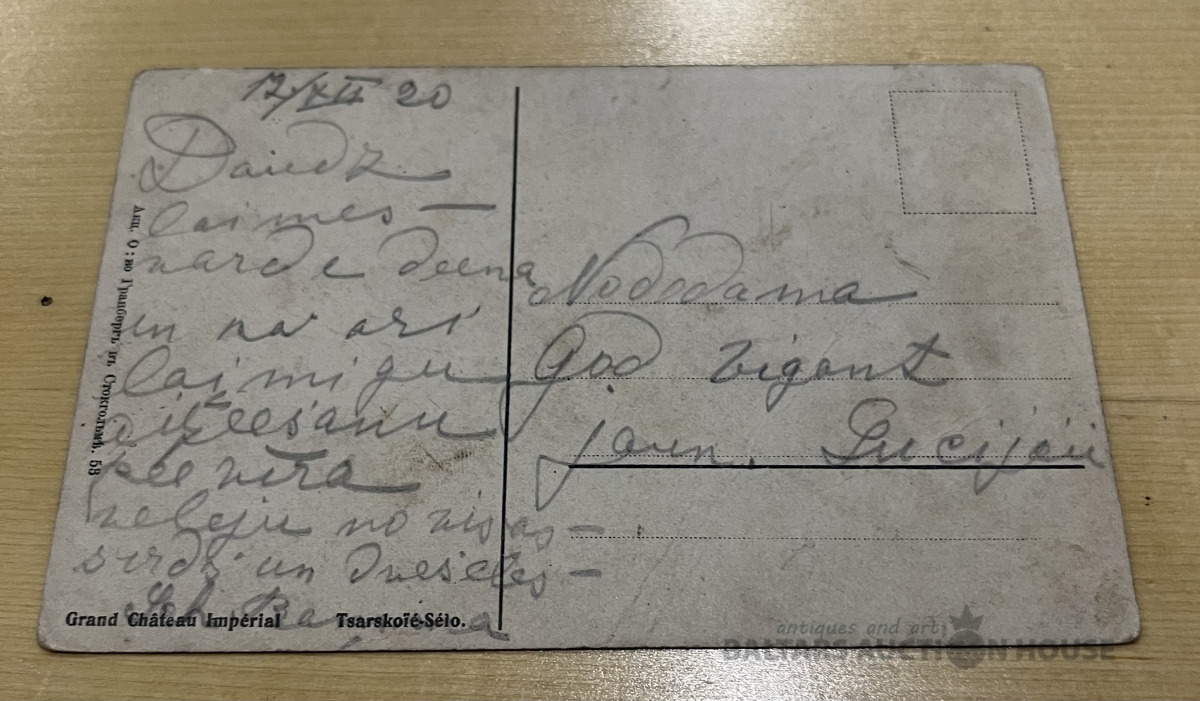 17/XII 20
Daudz
laimes —
varda deena
un no ari
laimigu
aiseešanu
pee vīra
veleju no visas —
sirds un dveseles —
Nododama
God Vigant
jaun. Lucijai
Акц. О:во Гранбергъ въ Стокгольмѣ. 58
Grand Château Impérial Tsarskoïé-Sélo.
antiques and art
BALTARS AUCTION HOUSE